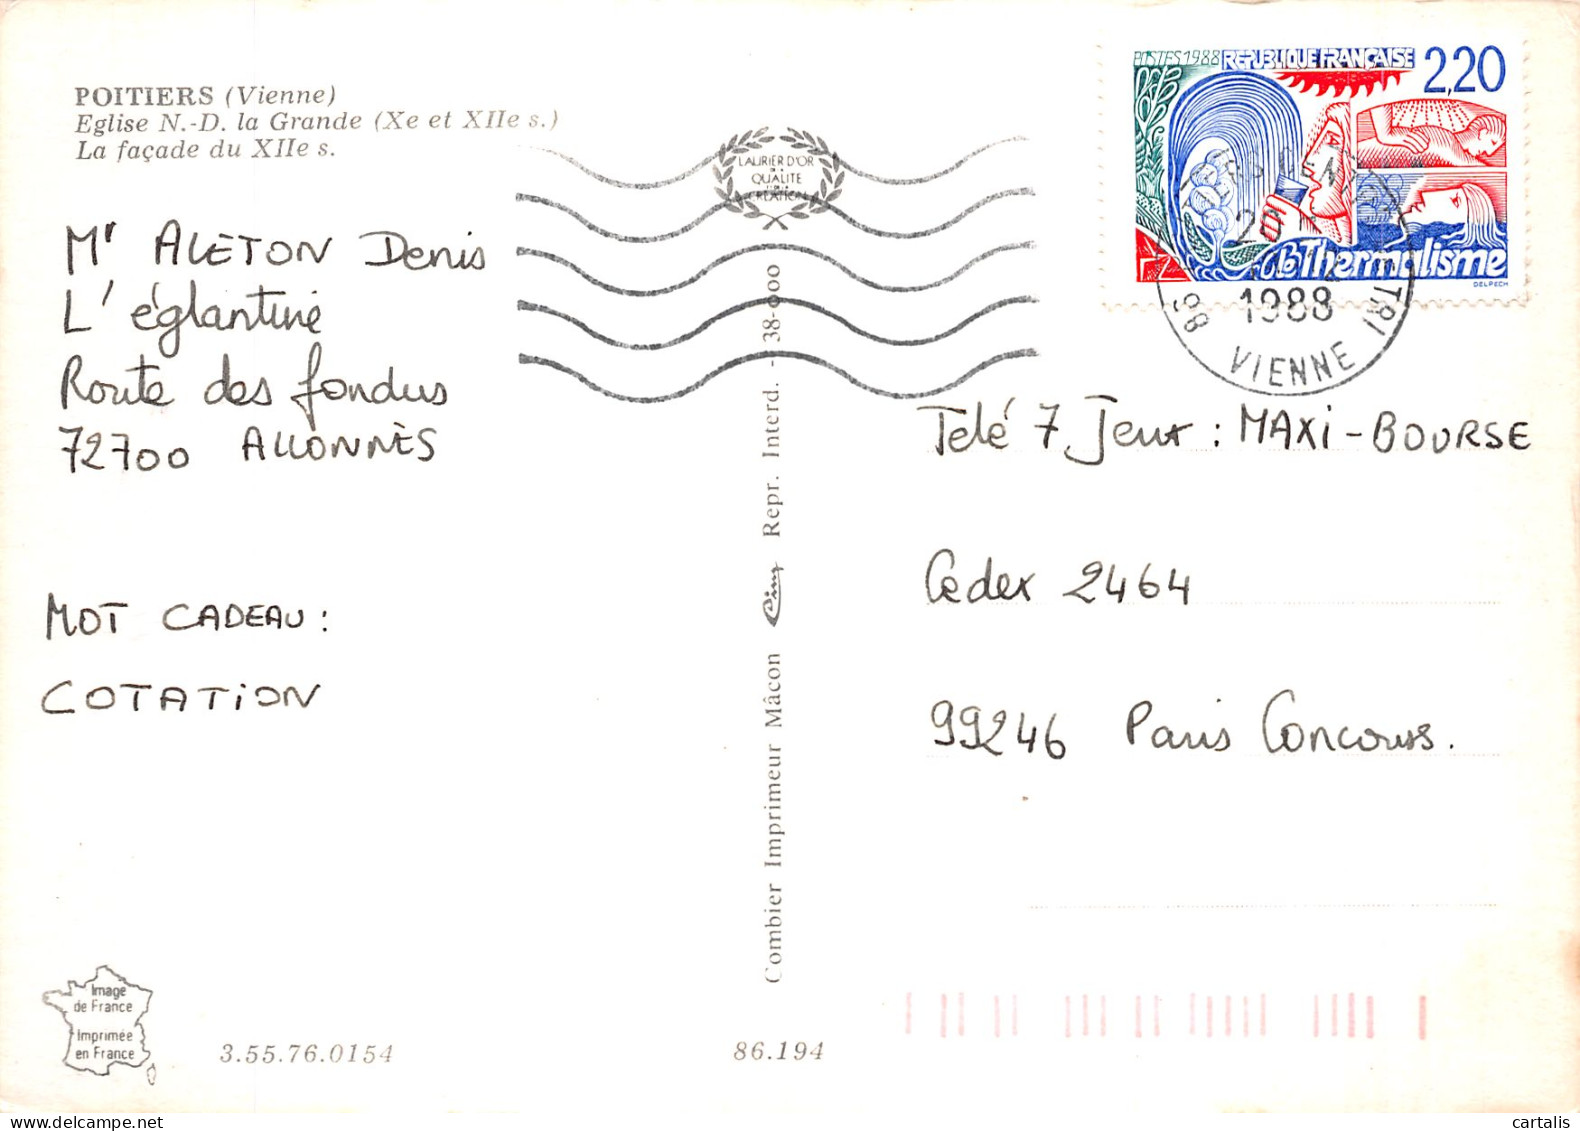 POITIERS (Vienne)
Eglise N.-D. la Grande (Xe et XIIe s.)
La façade du XIIe s.
Mr ALETON Denis
L'églantine
Route des fondus
72700 ALLONNES
MOT CADEAU :
COTATION
Image
de France
Imprimée
en France
3.55.76.0154
86.194
LAURIER D'OR
QUALITE
CREATION
Combier Imprimeur Mâcon Cim Repr. Interd. - 38-000
POSTES 1988 REPUBLIQUE FRANÇAISE 2,20
Thermalisme
DELPECH
20
1988
86 VIENNE
TRI
Télé 7 Jeux : MAXI-BOURSE
Cedex 2464
99246 Paris Concours.
cartalis